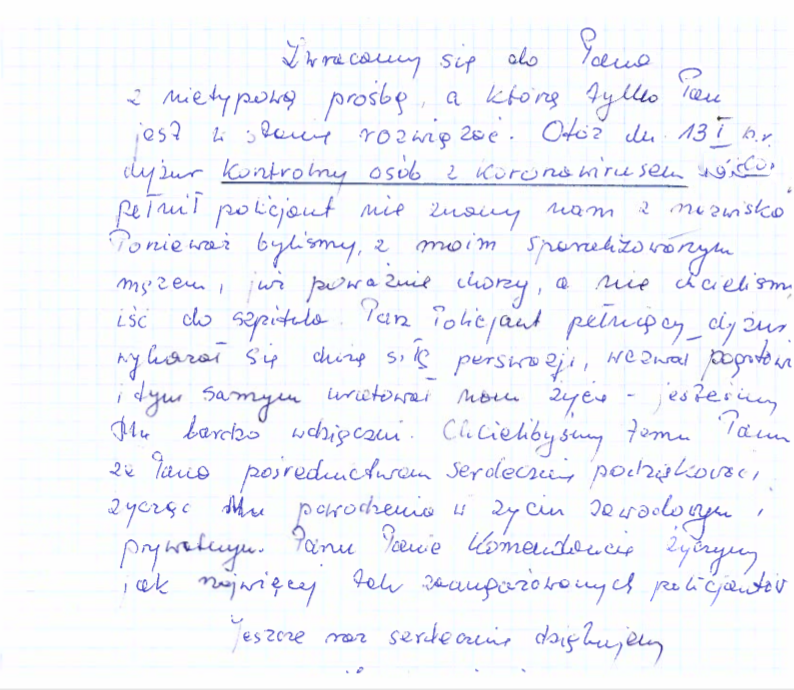 Zwracamy się do Pana
z nietypową prośbą, a którą tylko Pan
jest w stanie rozwiązać. Otóż dn. 13 I b.r.
dyżur kontrolny osób z koronawirusem
pełnił policjant nie znany nam z nazwiska
Ponieważ byliśmy, z moim sparaliżowanym
mężem, już poważnie chorzy, a nie chcieliśm
iść do szpitala. Pan Policjant pełniący dyżur
wykazał się dużą siłą perswazji, wezwał pogotowi
i tym samym uratował nam życie - jesteśmy
Mu bardzo wdzięczni. Chcielibyśmy temu Panu
za Pana pośrednictwem serdecznie podziękować,
życząc Mu powodzenia w życiu zawodowym i
prywatnym. Panu Panie Komendancie życzymy
jak najwięcej tak zaangażowanych policjantów
Jeszcze raz serdecznie dziękujemy